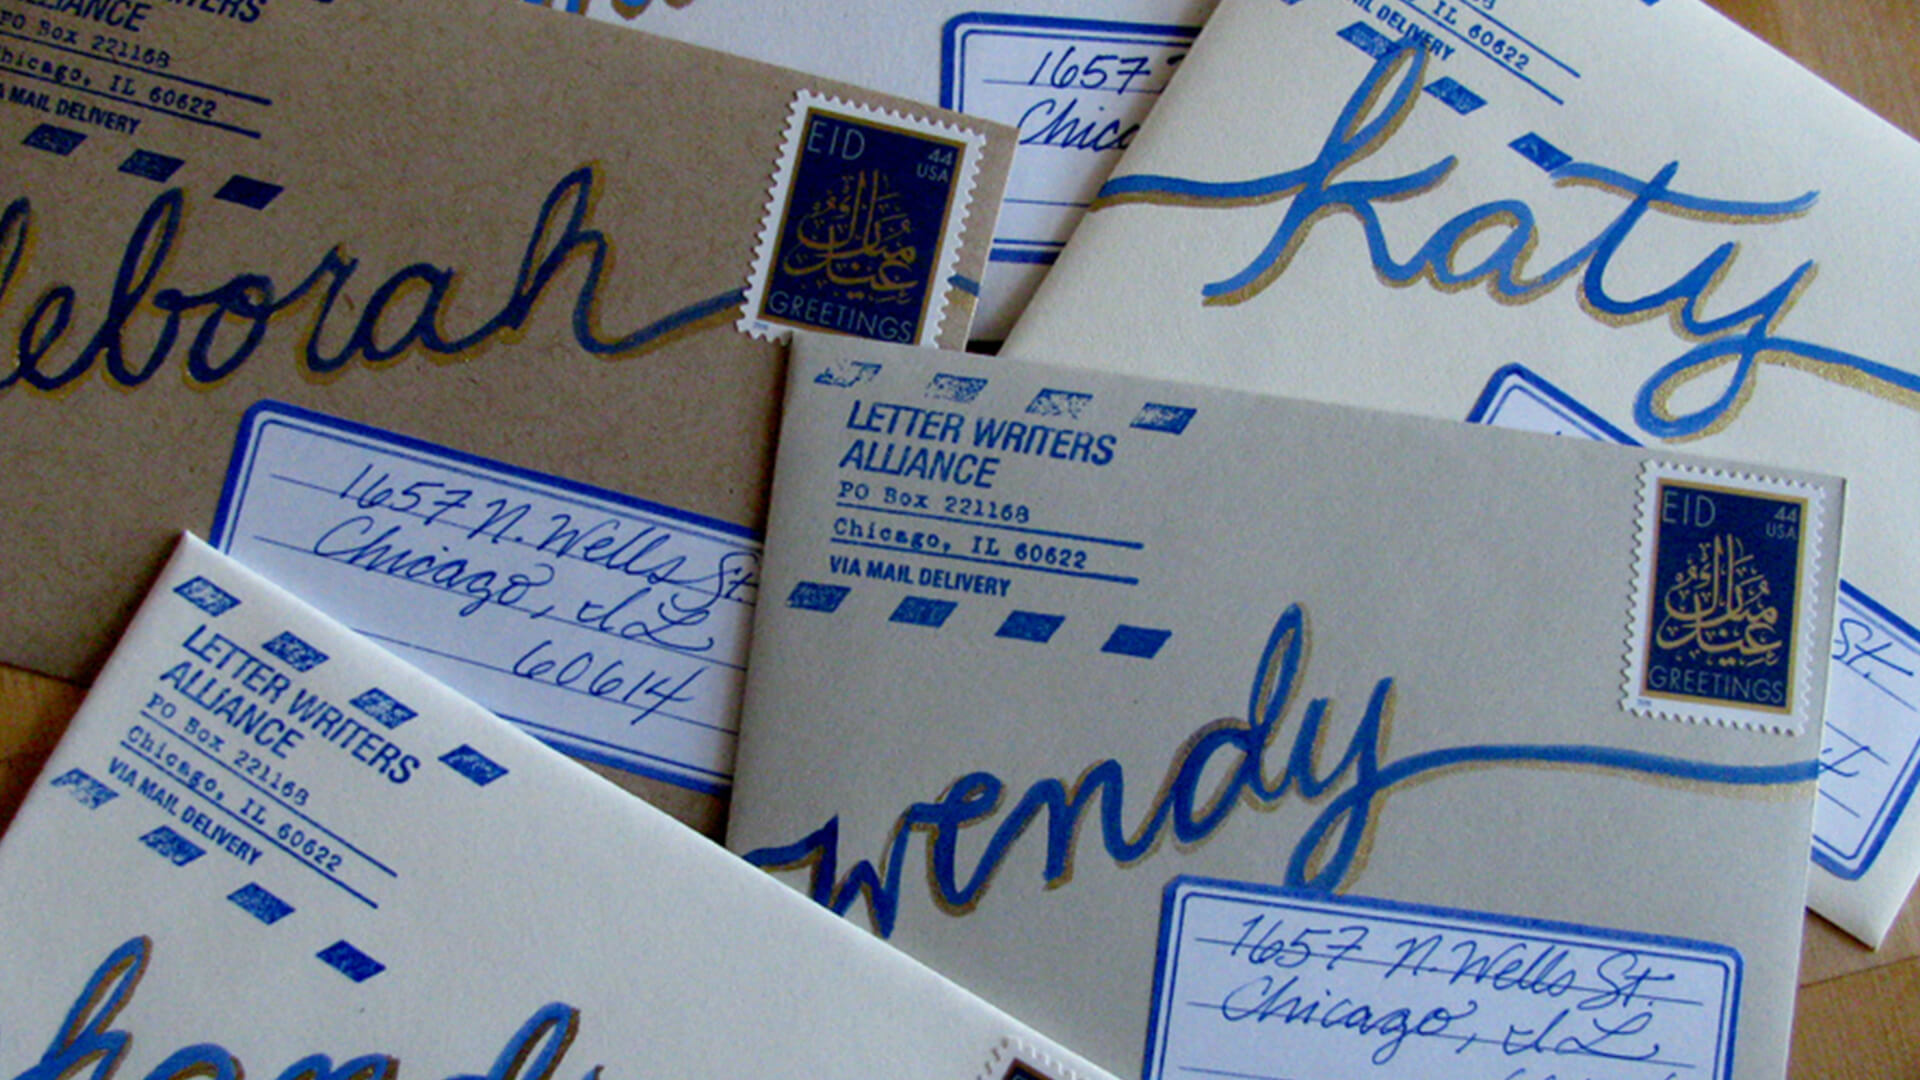 WRITERS
ALLIANCE
PO Box 221168
Chicago, IL 60622
VIA MAIL DELIVERY
deborah
EID
44
USA
عيد مبارك
GREETINGS
1657 N. Wells St.
Chicago, IL
60614
1657
Chica
IL 60622
MAIL DELIVERY
katy
St.
LETTER WRITERS
ALLIANCE
PO Box 221168
Chicago, IL 60622
VIA MAIL DELIVERY
EID
44
USA
عيد مبارك
GREETINGS
wendy
1657 N. Wells St.
Chicago, IL
LETTER WRITERS
ALLIANCE
PO Box 221168
Chicago, IL 60622
VIA MAIL DELIVERY